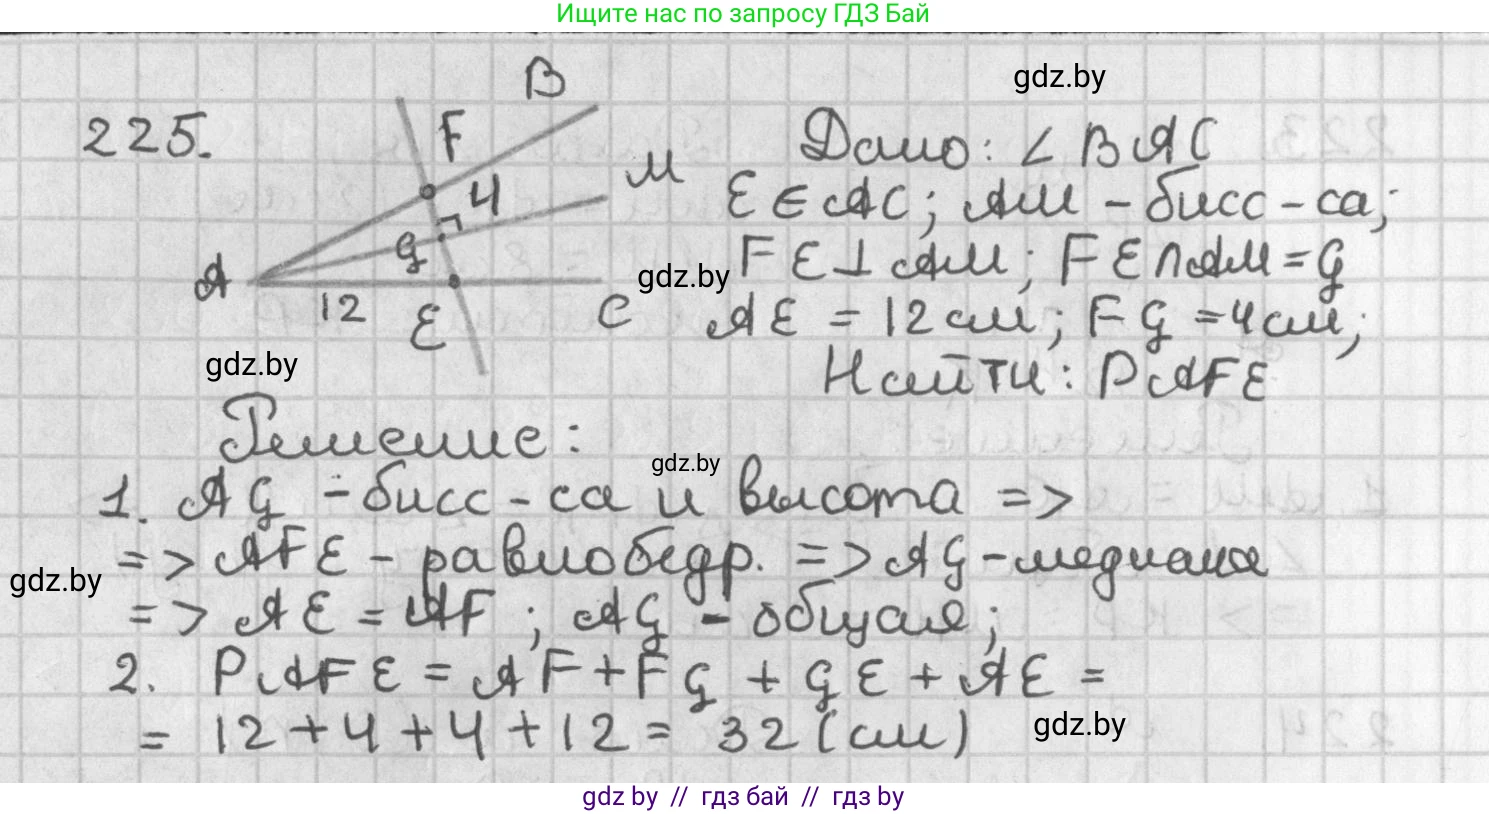 Ищите нас по запросу ГДЗ Бай
gdz.by
225.
B
F
M
4
G
A
12
E
C
Дано: ∠ BAC
E ∈ AC; AM - бисс-са;
FE ⊥ AM; FE ∩ AM = G
gdz.by
AE = 12 см; FG = 4 см;
Найти: PAFE
gdz.by
Решение:
gdz.by
1. AG - бисс-са и высота =>
=> AFE - равнобедр. => AG - медиана
gdz.by
=> AE = AF ; AG - общая;
2. PAFE = AF + FG + GE + AE =
= 12 + 4 + 4 + 12 = 32 (см)
gdz.by
gdz by // гдз бай // гдз by